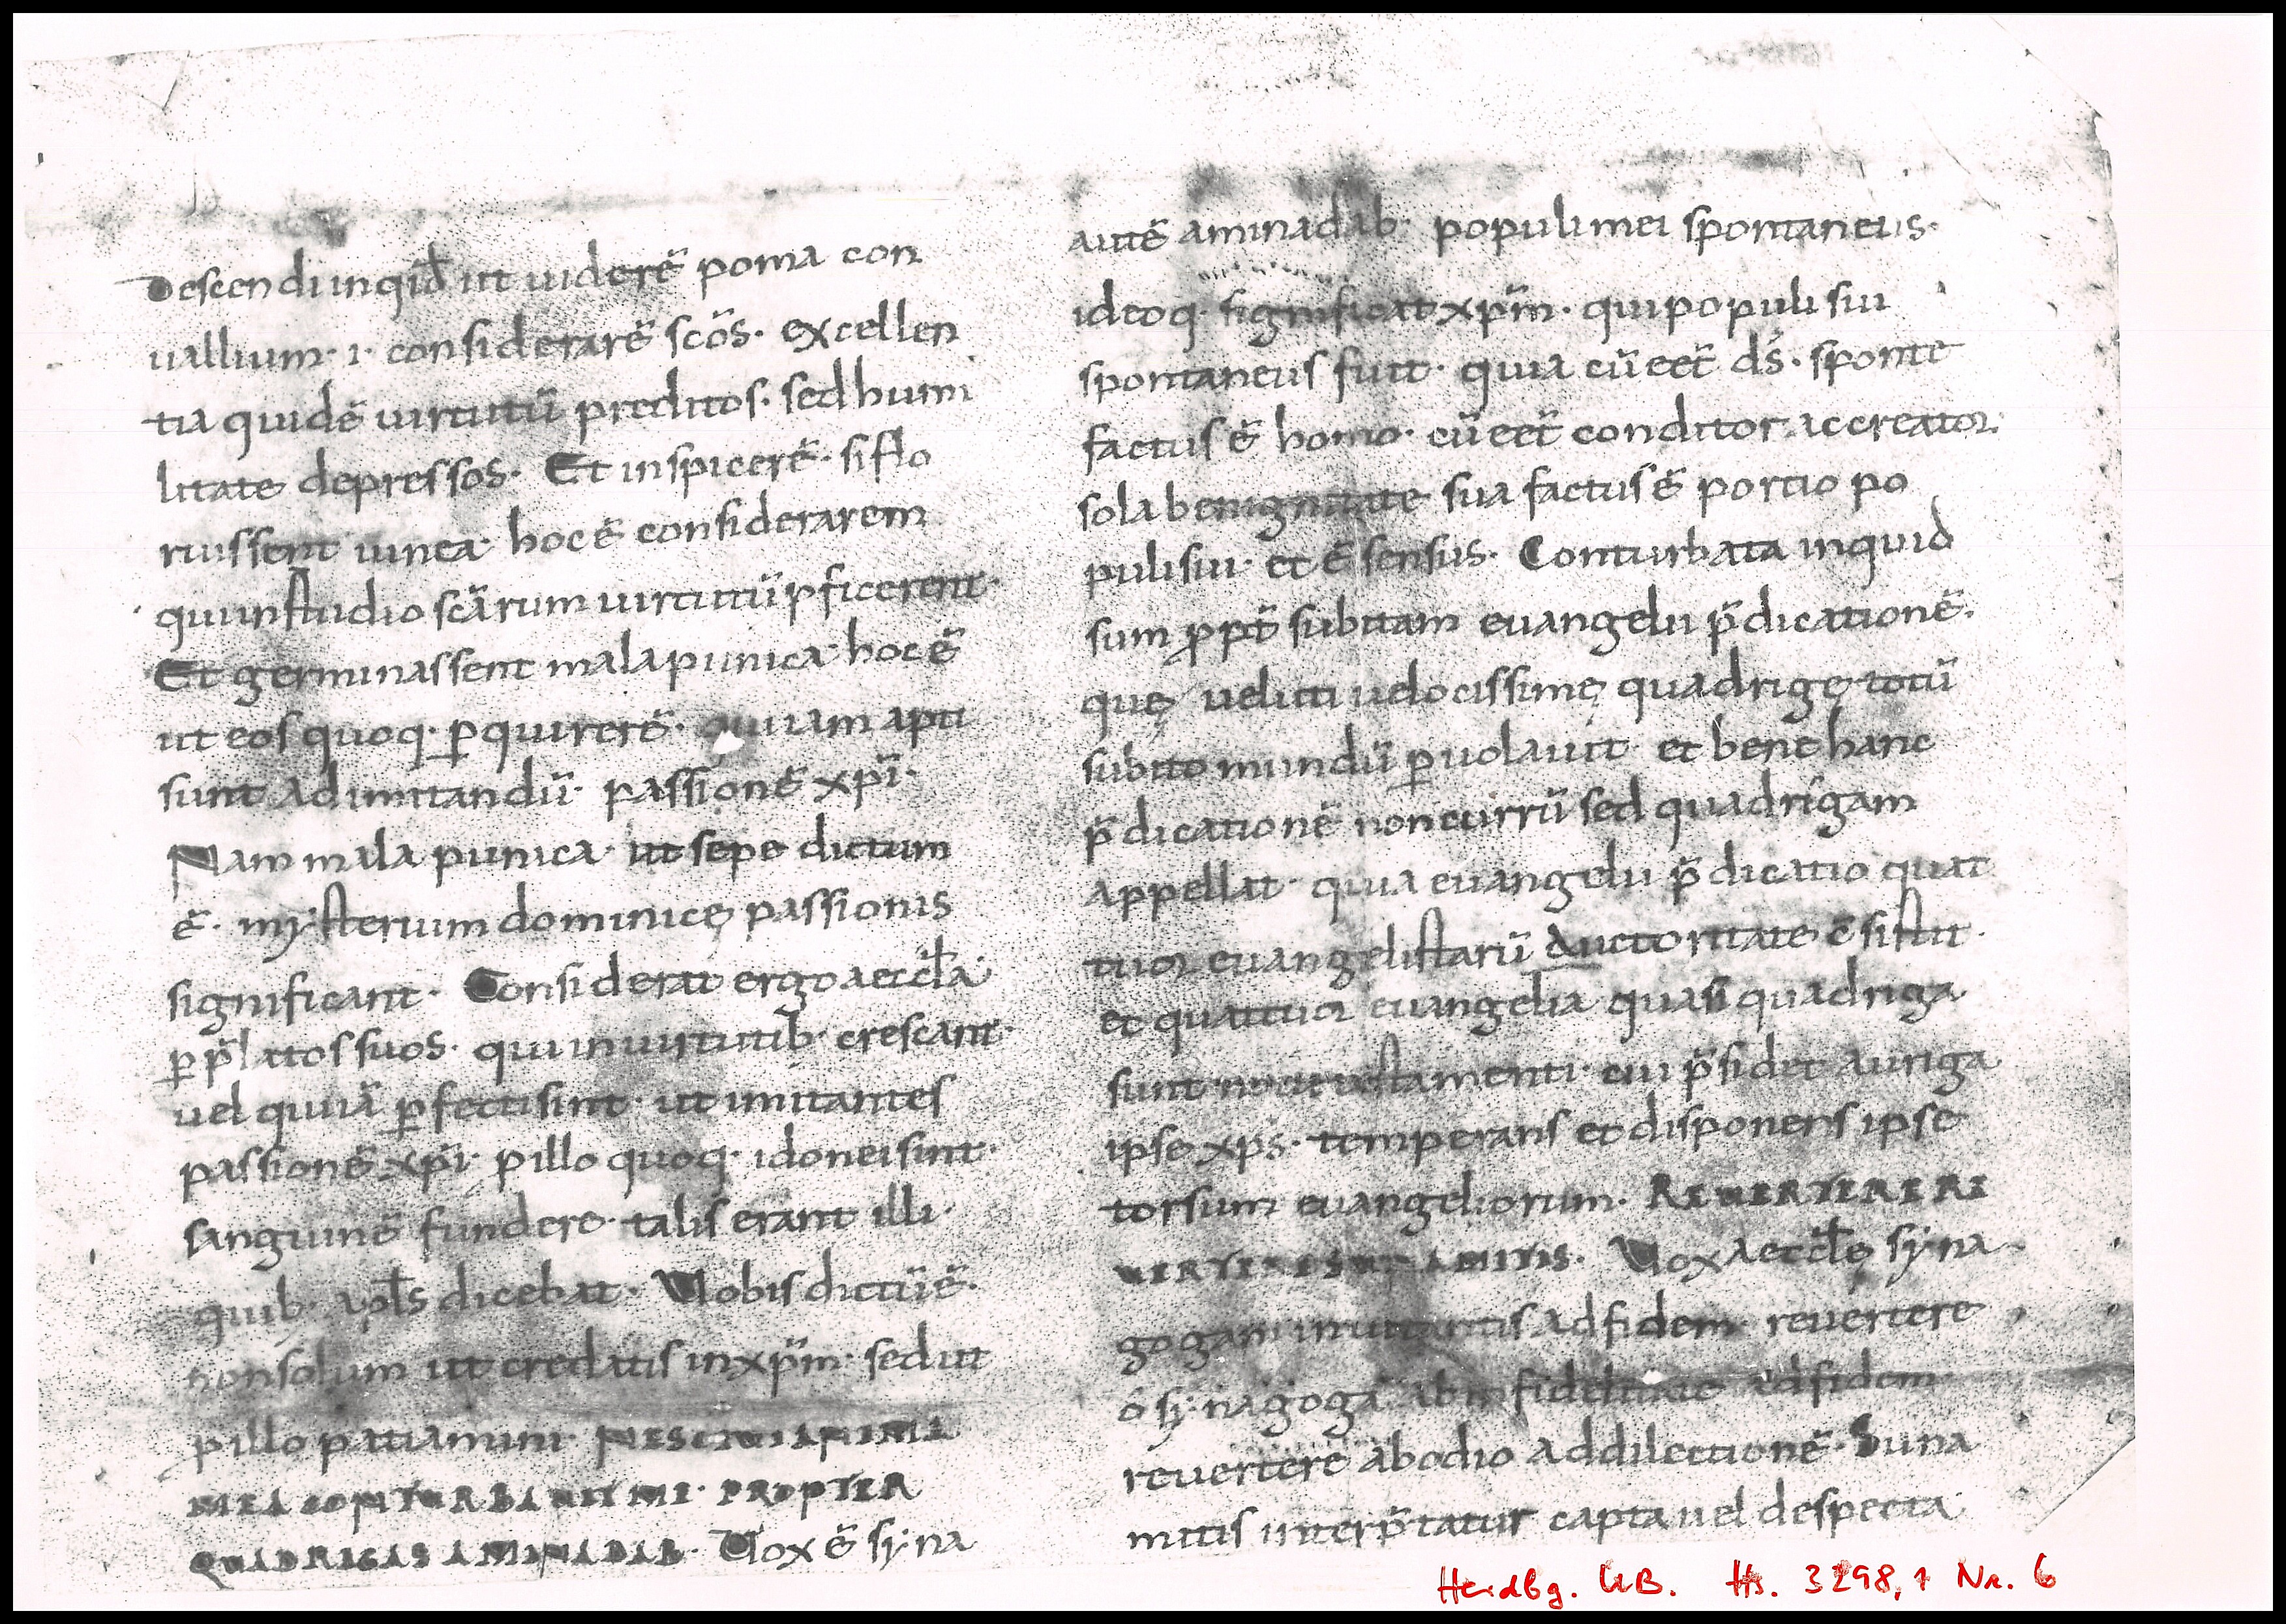 Descendi inqid̄ ut uiderē poma con
uallium· ı· considerarē scōs· excellen
tia quidē uirtutū preditos· sed humi
litate depressos· Et inspicerē· si flo
ruissent uinea· hoc ē considerarem
qui in studio scārum uirtutū ꝓficerent·
Et germinassent mala punica· hoc ē
ut eos quoq· ꝑquirerē· qui iam apti
sunt ad imitandū· passionē xp̄i·
Nam mala punica· ut sepe dictum
ē· mẏsterium dominicę passionis
significant· Considerat ergo aeccl̄a
ꝑ p̄latos suos· qui in uirtutib· crescant·
uel qui iā ꝑfecti sint· ut imitantes
passionē xp̄i· ꝓ illo quoq· idonei sint·
sanguinē fundere· talis erant illi·
quib· apl̄s dicebat· Uobis dictū ē·
non solum ut credatis in xp̄m· sed ut
ꝓ illo patiamini· NESCIUI ANIMA
MEA CONTURBAUIT ME· PROPTER
QUADRIGAS AMINADAB· Uox ē sẏna
autē aminadab· populi mei spontaneus·
ideoq· significat xp̄m· qui populi sui
spontaneus fuit· quia cū eet̄ ds̄· sponte
factus ē homo· cū eet̄ conditor ac creator·
sola benignitate sua factus ē portio po
puli sui· et ē sensus· Conturbata inquid
sum ꝓpt̄ subitam euangelii p̄dicationē·
quę ueluti uelocissimę quadrigę totū
subito mundū ꝑuolauit· et bene hanc
p̄dicationē non currū sed quadrigam
appellat· quia euangelii p̄dicatio quat
tuor euangelistarū auctoritate c̄sistit·
et quattuor euangelia quasi quadriga
sunt noui testamenti· cui p̄sidet auriga
ipse xps̄· temperans et disponens ipse
torsum euangeliorum· REUERTERE RE
UERTERE SUNAMITIS· Uox aeccl̄e sẏna
gogam inuitantis ad fidem· reuertere
ó sẏnagoga ab infidelitate ad fidem
reuertere ab odio ad dilectionē· Suna
mitis interp̄tatur capta uel despecta·
Heidbg. UB. Hs. 3298,1 Nr. 6